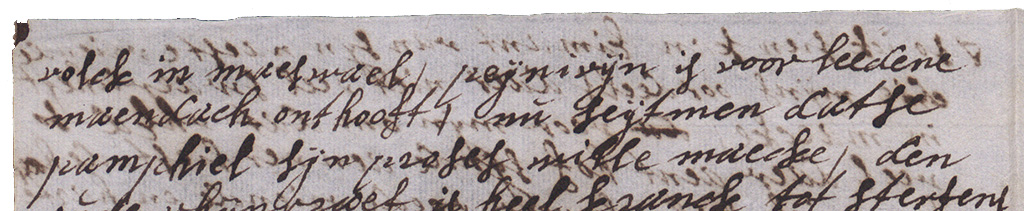 volck in maeswael, peijnwijn is voorleedene
maendach onthooft, nu seijtmen datse
pamphiel sijn proses wille maecke, den
heel kranck tot stervens